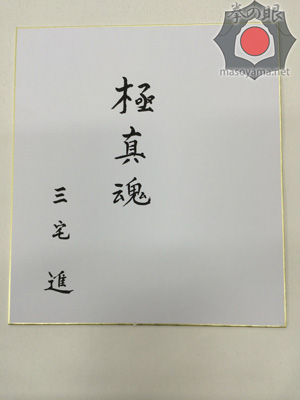 拳の眼
masoyama.net
極真魂
三宅進